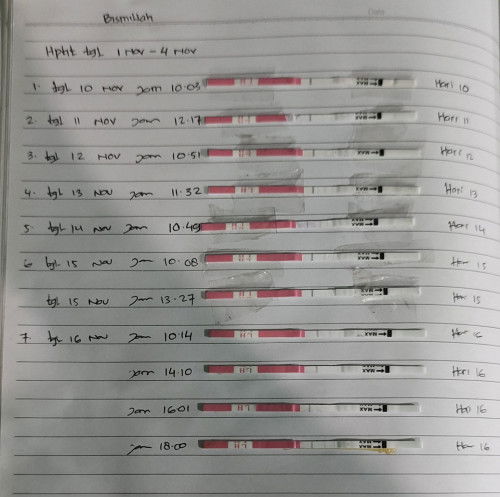 Bismillah
Date
Hpht tgl 1 Nov - 4 Nov
1. tgl 10 Nov Jam 10.03 LH MAX Hari 10
2. tgl 11 Nov Jam 12.17 LH MAX Hari 11
3. tgl 12 Nov Jam 10.51 LH MAX Hari 12
4. tgl 13 Nov Jam 11.32 LH MAX Hari 13
5. tgl 14 Nov Jam 10.49 LH MAX Hari 14
6. tgl 15 Nov Jam 10.08 LH MAX Hari 15
tgl 15 Nov Jam 13.27 LH MAX Hari 15
7. tgl 16 Nov Jam 10.14 LH MAX Hari 16
Jam 14.10 LH MAX Hari 16
Jam 16.01 LH MAX Hari 16
Jam 18.00 LH MAX Hari 16